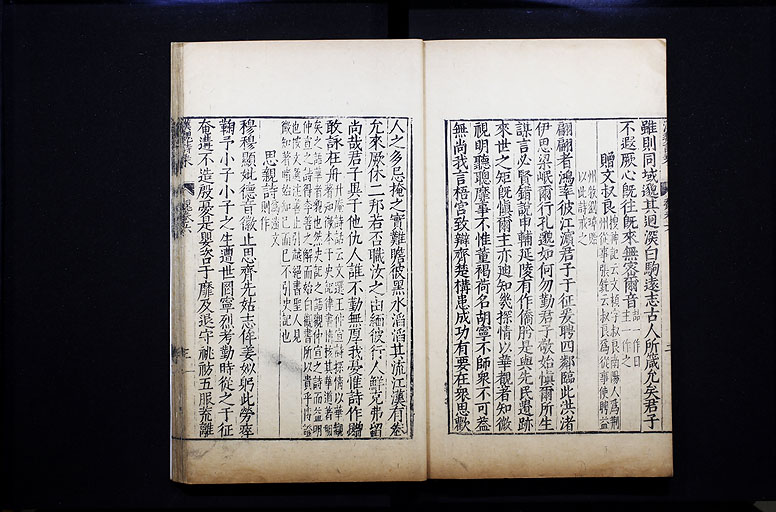 雖則同域邈其迥深白駒遠志古人所箴允矣君子
不遐厥心既往既來無密爾音
贈文叔良
搜神記云文穎字叔良南陽人為荊
州從事張銑云叔良為從事使聘益
州牧劉璋贈
以此詩戒之
翩翩者鴻率彼江濱君子于征爰聘四鄰臨此洪渚
伊思梁岷爾行孔邈如何勿勤君子敬始慎爾所主
謀言必賢錯說申輔延陵有作僑肸是與先民遺跡
來世之矩既慎爾主亦迪知幾探情以華覩著知微
視明聽聰靡事不惟董褐荷名胡寧不師衆不可葢
無尚我言梧宮致辯齊楚構患成功有要在衆思歡
人之多忌掩之實難瞻彼黑水滔滔其流江漢有卷
允來厥休二邦若否職汝之由緬彼行人鮮克弗留
尚哉君子異于他仇人誰不勤無厚我憂惟詩作贈
敢詠在舟
思親詩
為潘文
則作
穆穆顯妣德音徽止思齊先姑志侔姜姒躬此勞瘁
鞠予小子小子之生遭世罔寧烈考勤時從之于征
奄遘不造殷憂是嬰咨于靡及退守祧祊五服荒離